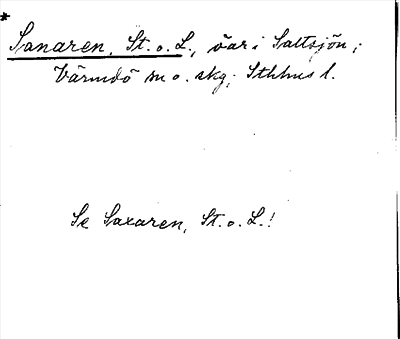 *
Sanaren, St. o. L., öar i Saltsjön;
Värmdö sn o. skg; Sthlms l.
Se Saxaren, St. o. L.!